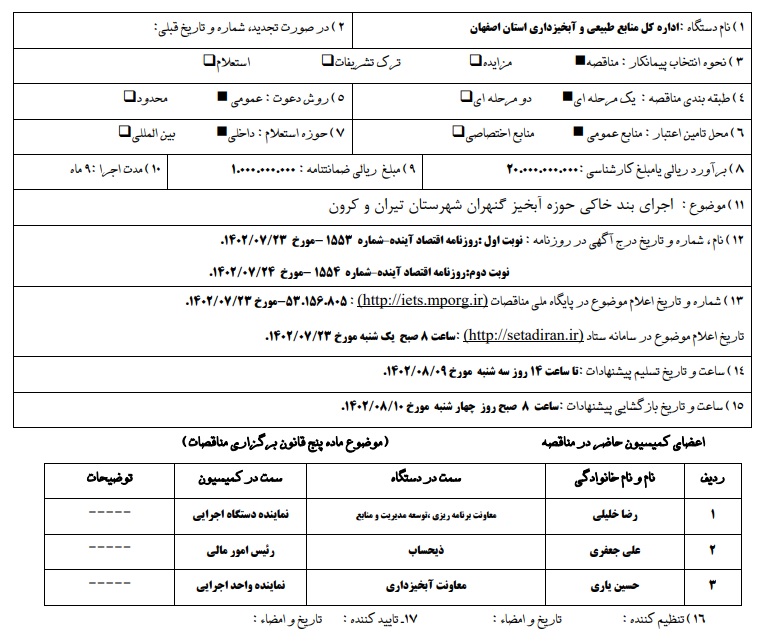 ۱) نام دستگاه :اداره کل منابع طبیعی و آبخیزداری استان اصفهان
۲) در صورت تجدید، شماره و تاریخ قبلی:
۳) نحوه انتخاب پیمانکار : مناقصه■ مزایده❑ ترک تشریفات❑ استعلام❑
۴) طبقه بندی مناقصه : یک مرحله ای■ دو مرحله ای❑
۵) روش دعوت : عمومی ■ محدود❑
۶) محل تامین اعتبار : منابع عمومی ■ منابع اختصاصی❑
۷) حوزه استعلام : داخلی■ بین المللی❑
۸) برآورد ریالی یامبلغ کارشناسی :۲۰.۰۰۰.۰۰۰.۰۰۰
۹) مبلغ ریالی ضمانتنامه : ۱.۰۰۰.۰۰۰.۰۰۰
۱۰) مدت اجرا : ۹ ماه
۱۱) موضوع : اجرای بند خاکی حوزه آبخیز گنهران شهرستان تیران و کرون
۱۲) نام ، شماره و تاریخ درج آگهی در روزنامه : نوبت اول :روزنامه اقتصاد آینده–شماره ۱۵۵۳ –مورخ ۱۴۰۲/۰۷/۲۳.
نوبت دوم:روزنامه اقتصاد آینده–شماره ۱۵۵۴ –مورخ ۱۴۰۲/۰۷/۲۴.
۱۳) شماره و تاریخ اعلام موضوع در پایگاه ملی مناقصات (http://iets.mporg.ir) : ۵۳.۱۵۶.۸۰۵–مورخ ۱۴۰۲/۰۷/۲۳.
تاریخ اعلام موضوع در سامانه ستاد (http://setadiran.ir) :ساعت ۸ صبح یک شنبه مورخ ۱۴۰۲/۰۷/۲۳.
۱۴) ساعت و تاریخ تسلیم پیشنهادات :تا ساعت ۱۴ روز سه شنبه مورخ ۱۴۰۲/۰۸/۰۹.
۱۵) ساعت و تاریخ بازگشایی پیشنهادات :ساعت ۸ صبح روز چهار شنبه مورخ ۱۴۰۲/۰۸/۱۰.
اعضای کمیسیون حاضر در مناقصه (موضوع ماده پنج قانون برگزاری مناقصات)
ردیف نام و نام خانوادگی سمت در دستگاه سمت در کمیسیون توضیحات
۱ رضا خلیلی معاونت برنامه ریزی ،توسعه مدیریت و منابع نماینده دستگاه اجرایی -----
۲ علی جعفری ذیحساب رئیس امور مالی -----
۳ حسین یاری معاونت آبخیزداری نماینده واحد اجرایی -----
۱۶) تنظیم کننده : تاریخ و امضاء : ۱۷- تایید کننده : تاریخ و امضاء :